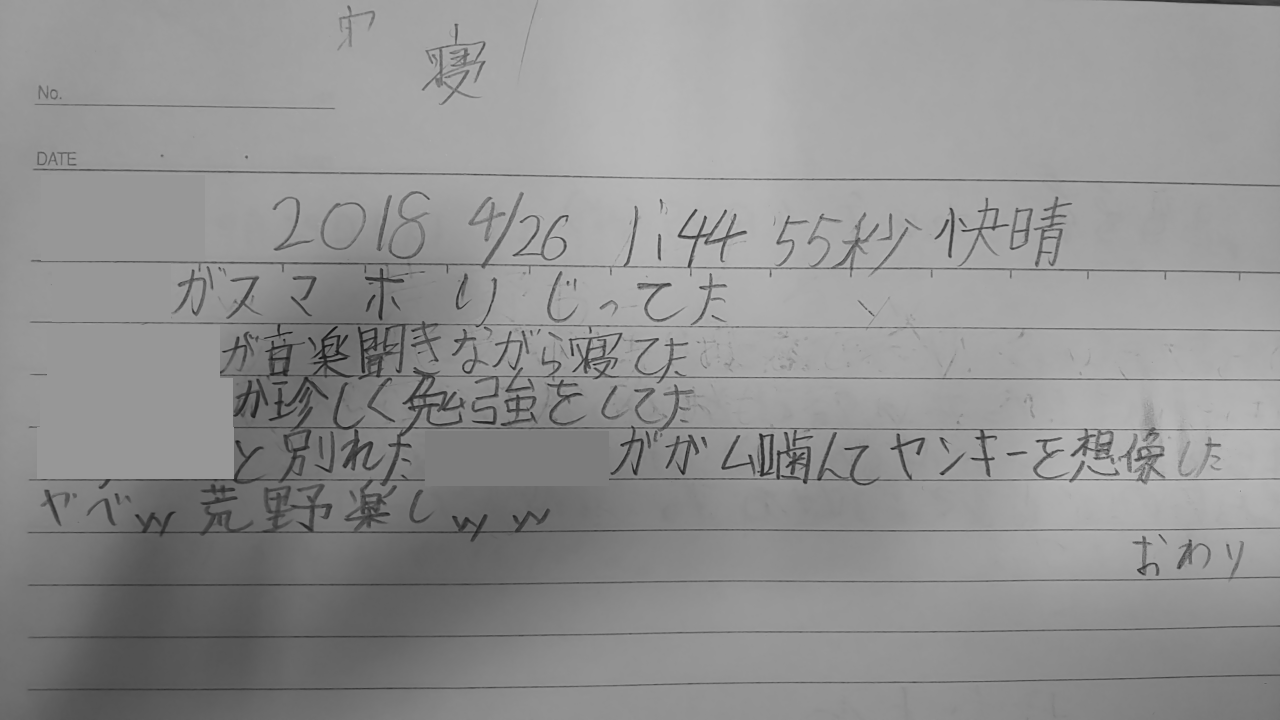 寝
No.
DATE
2018 4/26 11:44 55秒 快晴
がスマホいじってた
が音楽聞きながら寝てた
が珍しく勉強をしてた
と別れた がガム噛んでヤンキーを想像した
ヤベww 荒野楽しwww
おわり